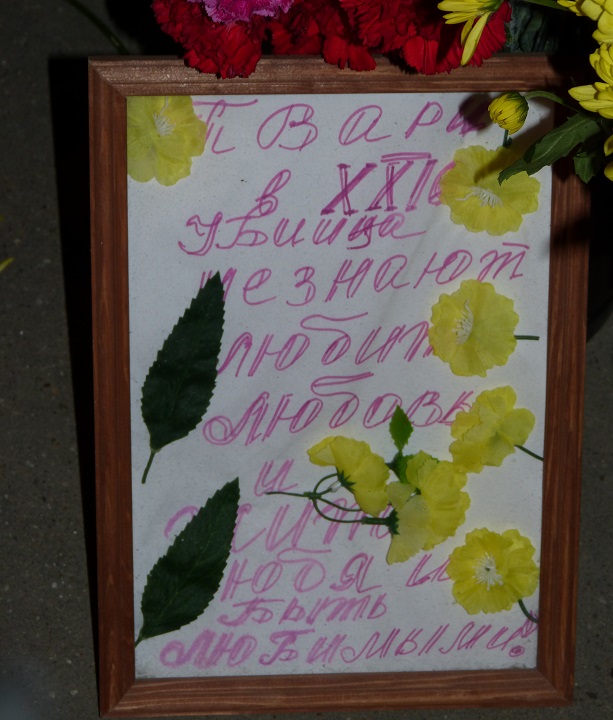 Твари
в XXI в
убийца
незнают
любит
любовь
и
жить
любя и
быть
любимыми?